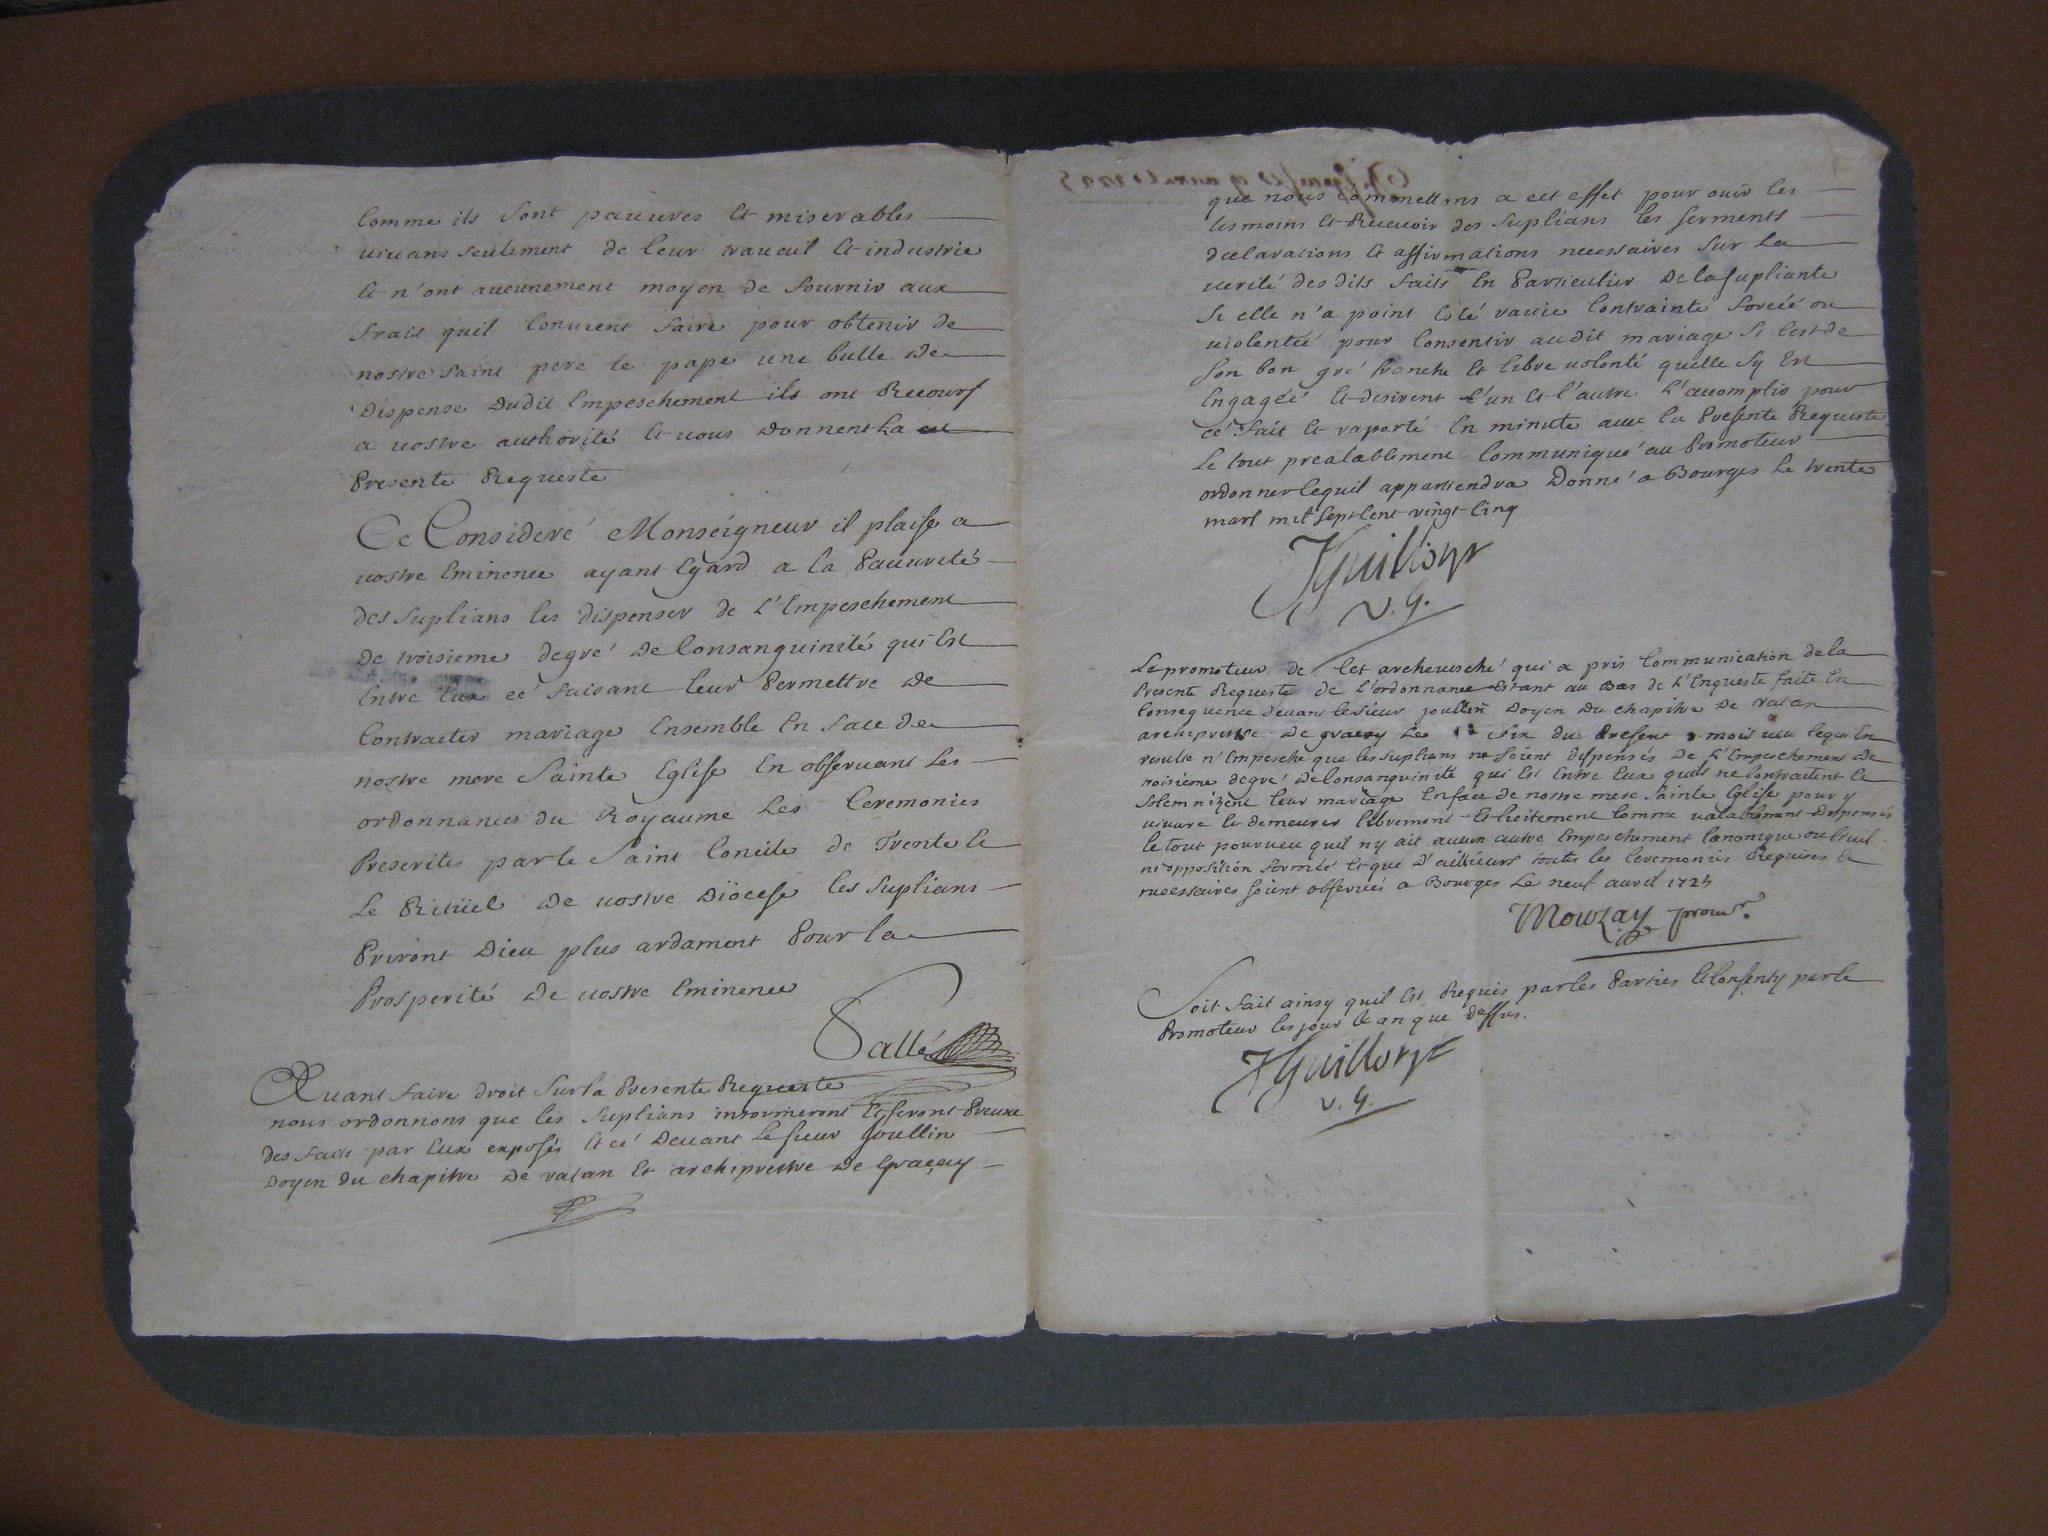 Comme ils sont pauures et miserables
viuans seulement de leur traueuil et industrie
et n'ont aucunement moyen de fournir aux
frais quil Conuient faire pour obtenir de
nostre saint pere le pape une bulle de
Dispense Dudit Empeschement ils ont Recours
a vostre authorité et vous Donnent La
Presente Requeste
Ce Consideré Monseigneur il plaise a
vostre Eminence ayant Egard a la Pauureté
des suplians les dispenser de L'Empeschement
De troisieme degré De Consanguinité qui Est
Entre Eux cé faisant leur Permettre De
Contracter mariage Ensemble En face de
nostre mere Sainte Eglise En obseruant Les
ordonnances du Royaume Les Ceremonies
Prescrites par le Saint Concile de Trente et
Le Ritüel De vostre Diöcese les suplians
Priront Dieu plus ardament Pour la
Prosperité De vostre Eminence
Sallé
Auant faire droit sur la Presente Requeste
nous ordonnons que les suplians informeront et feront Preuue
des faits par Eux exposés et cé Deuant Le sieur Joullin
Doyen du chapitre de vatan et archiprestre de Graçay
que nous Commettons a cet effet pour ouir les
tesmoins et Receuoir des suplians les serments
declarations et affirmations necessaires sur La
verité des dits faits En Particulier De la supliante
si elle n'a point Esté rauie Contrainte forcéé ou
violentéé pour Consentir audit mariage si C'est de
son bon gré franche et libre volonté quelle sy Est
Engagéé et desirent l'un et l'autre L'accomplir pour
cé fait et raporté En minute auec la Presente Requeste
Le tout prealablement Communiqué au Promoteur
ordonner cequil appartiendra Donné a Bourges Le trente
mars mil sept Cent vingt Cinq
JGuillorye
V. G.
Le promoteur de Cet archeuesché qui a pris Communication de la
Presente Requeste de L'ordonnance Estant au Bas de L'Enqueste faite En
Consequence deuant le sieur joullin Doyen Du chapitre De vatan
archiprestre De gracay Le six du Present mois veu cequi En
resulte n'Empesche que les suplians ne soient dispensés De L'Empeschement De
troisieme degré De Consanguinité qui Est Entre Eux quils ne Contractent et
solemnizent leur mariage En face de nostre mere Sainte Eglise pour y
viuure et demeurer librement et licitement Comme valablement Dispensés
le tout pourueu quil ny ait aucun autre Empeschement Canonique ou Ciuil
ni opposition forméé et que D'ailleurs toutes les Ceremonies Requises et
necessaires soient obseruéés a Bourges Le neuf auril 1725
Mouzay promr.
Soit fait ainsy quil Est Requis par les Parties et Consenty par le
Promoteur les jour et an que dessus.
JGuillorye
V. G.